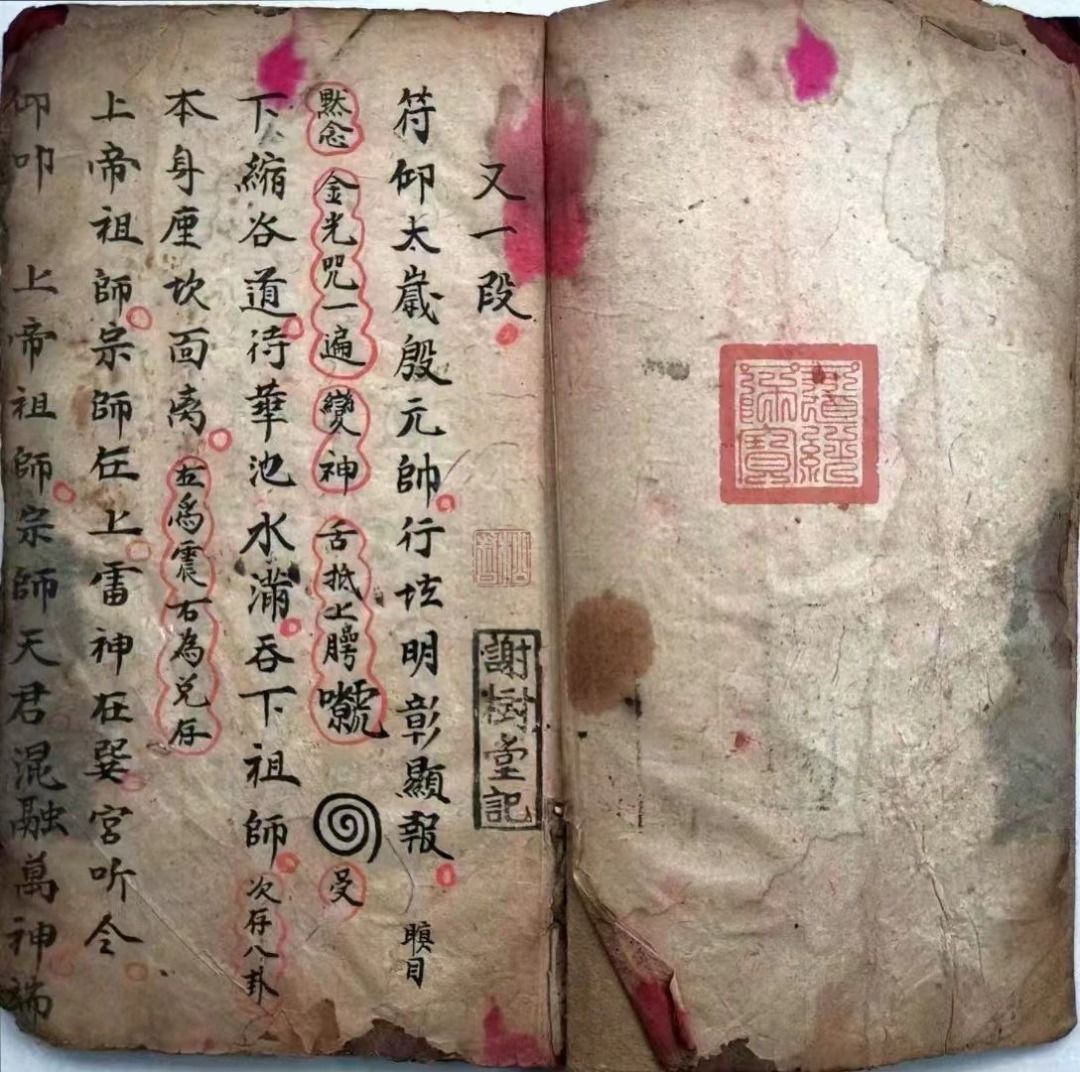 道經師寶
又一段
謝樹堂記
符仰太歲殷元帥行坛明彰顯報 瞋目
黙念 金光咒一遍 變神 舌抵上腭 受
下縮谷道待華池水滿吞下祖師 次存八卦
本身座坎面离 左爲震右為兑存
上帝祖師宗師在上雷神在巽宮听令
仰叩 上帝祖師宗師天君混融萬神端